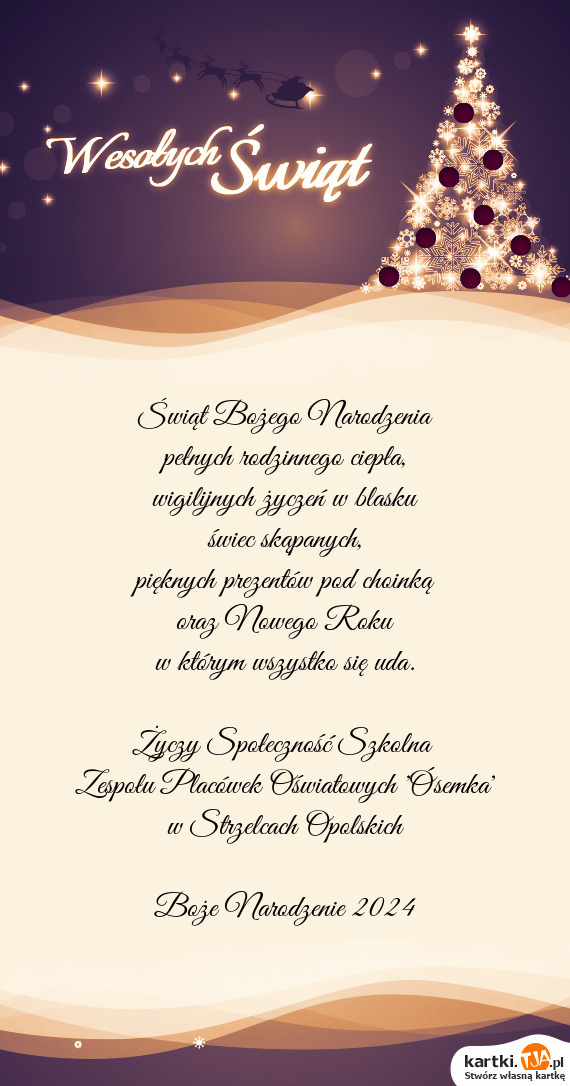 Wesołych Świąt
Świąt Bożego Narodzenia
pełnych rodzinnego ciepła,
wigilijnych życzeń w blasku
świec skąpanych,
pięknych prezentów pod choinką
oraz Nowego Roku
w którym wszystko się uda.
Życzy Społeczność Szkolna
Zespołu Placówek Oświatowych 'Ósemka'
w Strzelcach Opolskich
Boże Narodzenie 2024
kartki.TJA.pl
Stwórz własną kartkę